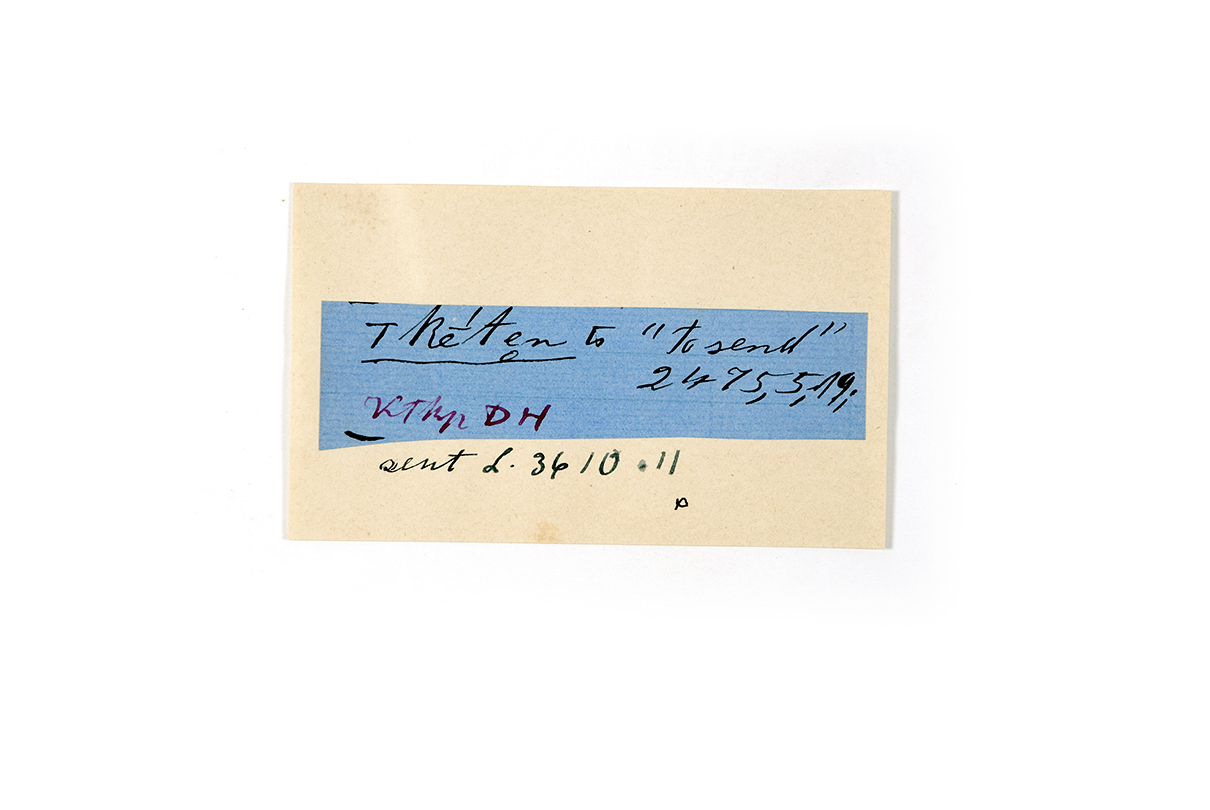 T k̓ē´t̓en to "to send"
2475,5,19;
KThp DH
sent L. 3610.11